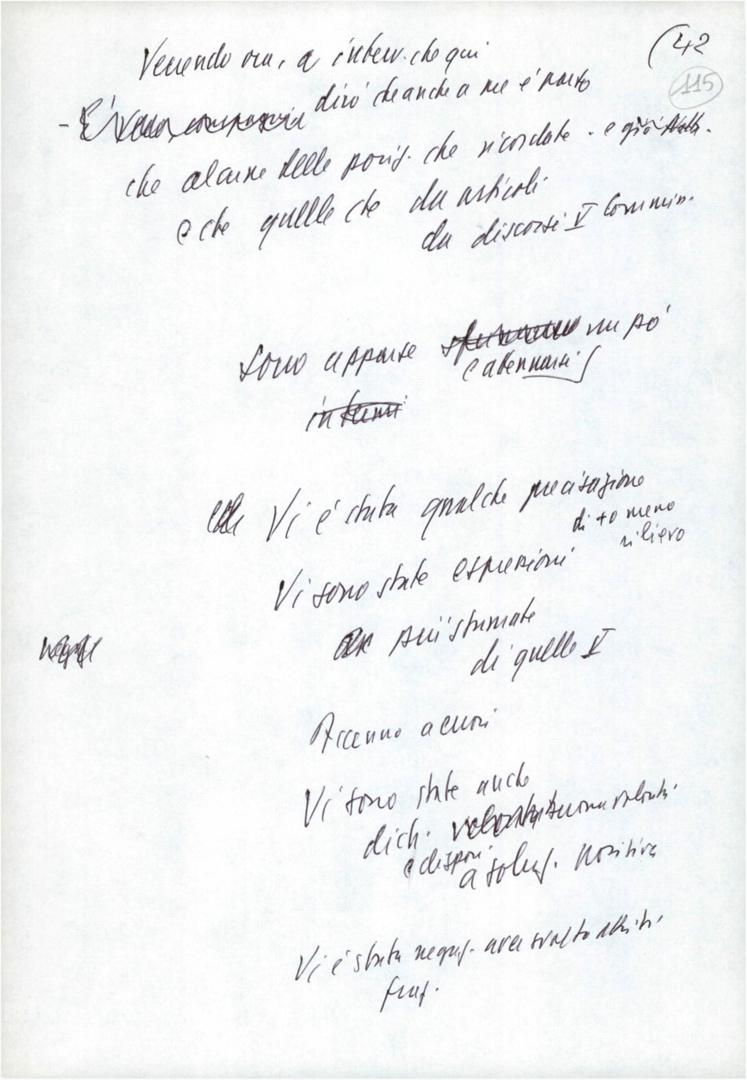 (42
115
Venendo ora, a interv. che qui
- È vero dirò che anche a me è parso
che alcune delle posiz. che ricordate - e già
e che quelle che da articoli
da discorsi V Commiss.
sono apparse un pò
e attenuarsi
Vi è stata qualche precisazione
di + o meno
rilievo
Vi sono state espressioni
più sfumate
di quelle V
Accenno a cuori
Vi sono state anche
dich. buona volontà
e dispon.
a soluz. positiva
Vi è stata negaz. aver svolto attiti.
fraz.